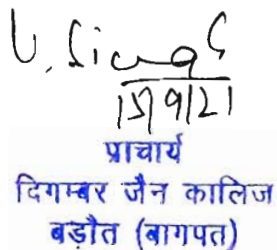 15/9/21
प्राचार्य
दिगम्बर जैन कालिज
बड़ौत (बागपत)